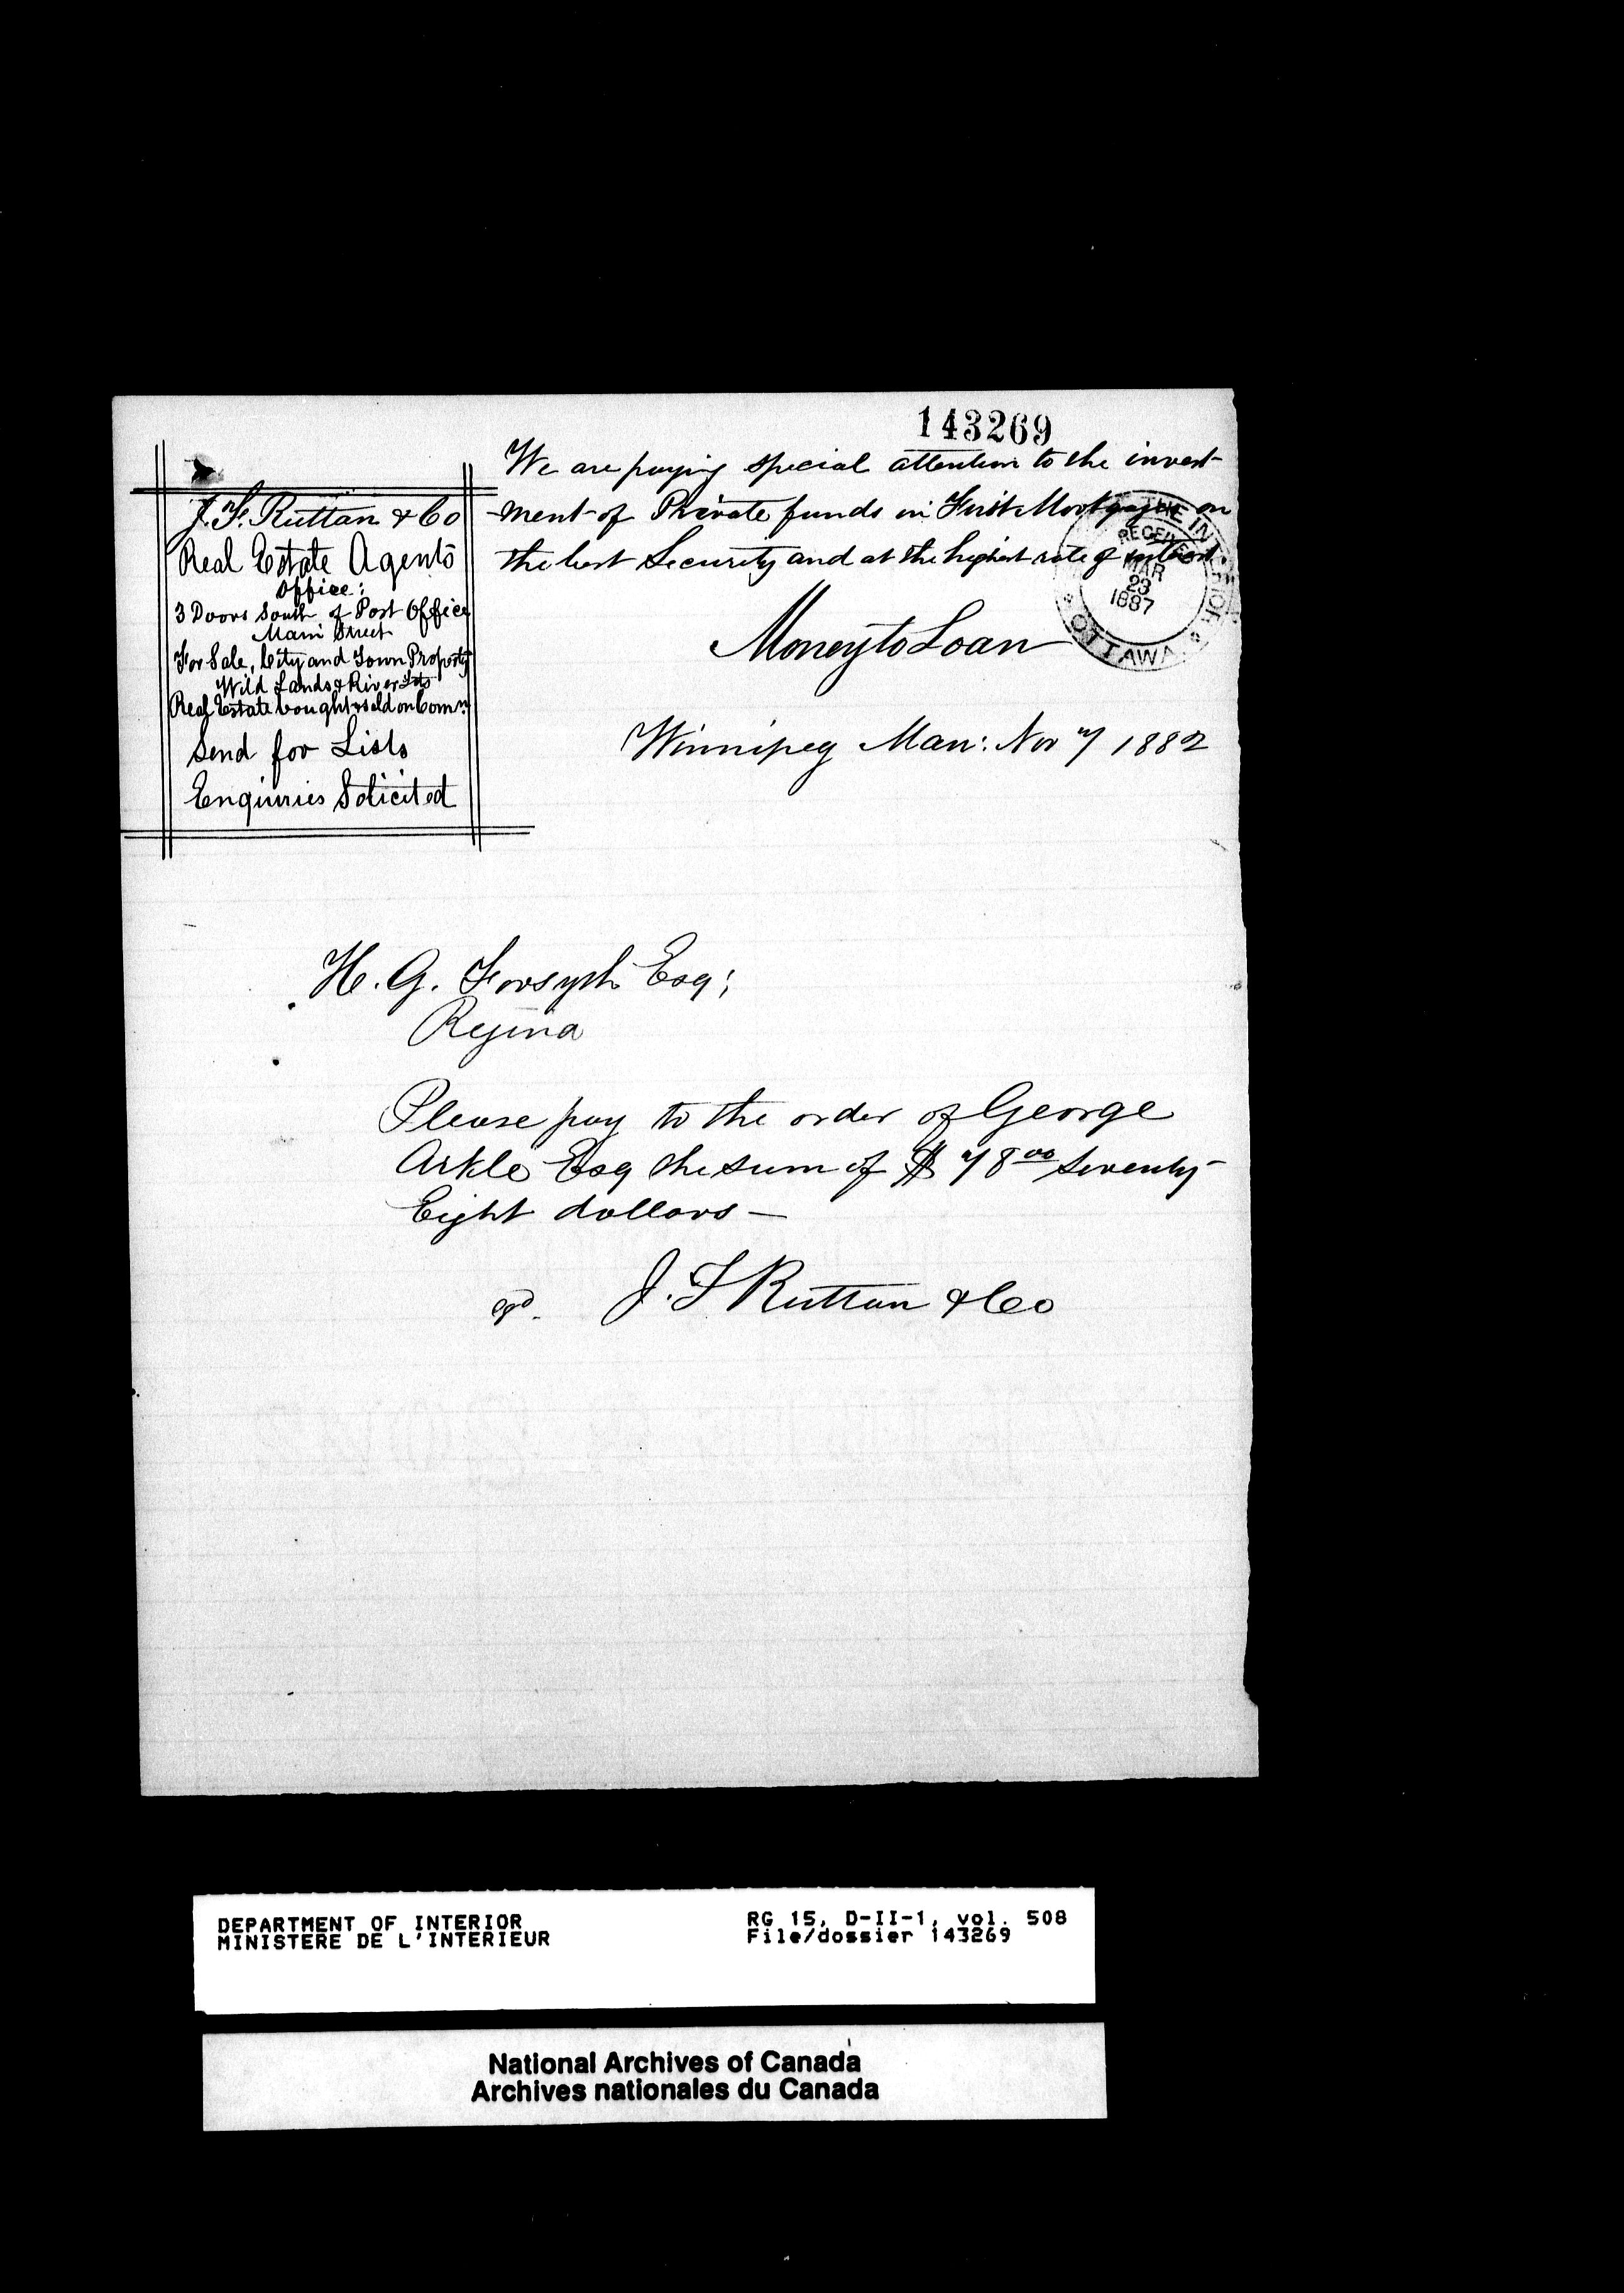 143269
We are paying special attention to the invest-
ment of Private funds in First Mortgages on
the best Security and at the highest rate of interest
Money to Loan
THE INTERIOR
RECEIVED
MAR
23
1887
OTTAWA
J. F. Ruttan & Co
Real Estate Agents
Office:
3 Doors South of Post Office
Main Street
For Sale, City and Town Property
Wild Lands & River Lots
Real Estate bought & sold on Comn
Send for Lists
Enquiries Solicited
Winnipeg Man: Nov 7 1882
H. G. Forsyth Esq;
Regina
Please pay to the order of George
Arkle Esq the sum of $ 78 00 Seventy-
Eight dollars —
J. F Ruttan & Co
DEPARTMENT OF INTERIOR
MINISTERE DE L'INTERIEUR
RG 15, D-II-1, vol. 508
File/dossier 143269
National Archives of Canada
Archives nationales du Canada